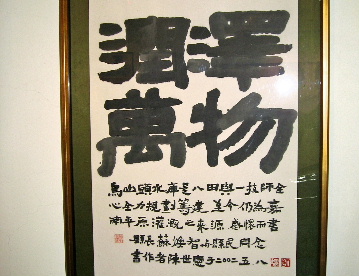 潤澤
萬物
烏山頭水庫是八田與一技師全
心全力規劃籌建至今仍為嘉
南平原灌溉之來源感懷而書
縣長蘇煥智与縣民同念
書作者陳世憲于二〇〇二五八